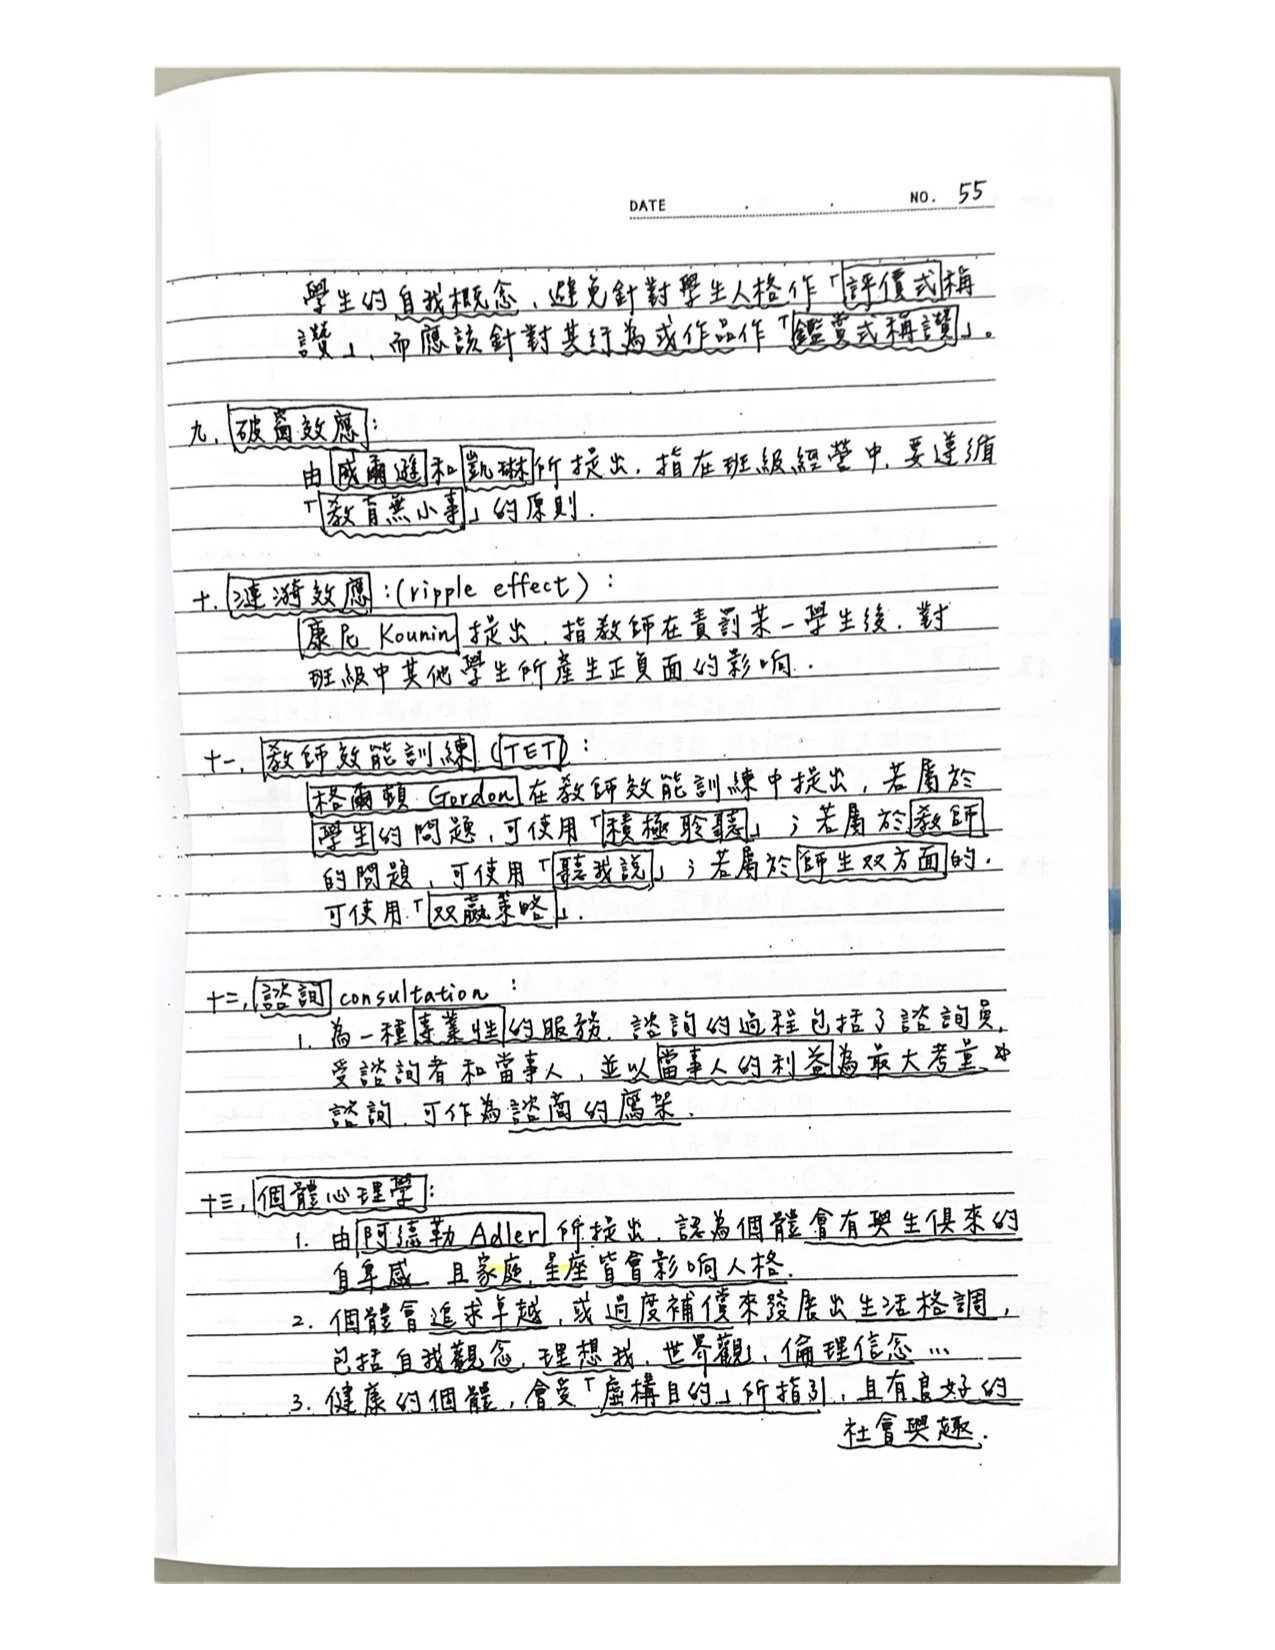 DATE . . NO. 55
學生的自我概念、避免針對學生人格作「評價式稱
讚」、而應該針對其行為或作品作「鑑賞式稱讚」。
九、破窗效應:
由威爾遜和凱琳所提出．指在班級經營中．要遵循
「教育無小事」的原則．
十、漣漪效應:(ripple effect):
康尼 Kounin 提出．指教師在責罰某一學生後．對
班級中其他學生所產生正負面的影响．
十一、教師效能訓練(TET):
格爾頓 Gordon 在教師效能訓練中提出，若屬於
學生的問題，可使用「積極聆聽」；若屬於教師
的問題，可使用「聽我說」；若屬於師生双方面的．
可使用「双贏策略」．
十二、諮詢 consultation :
1. 為一種專業性的服務．諮詢的過程包括了諮詢員．
受諮詢者和當事人，並以當事人的利益為最大考量．
諮詢．可作為諮商的鷹架．
十三、個體心理學:
1. 由阿德勒 Adler 所提出．認為個體會有與生俱來的
自卑感 且家庭．星座皆會影响人格．
2. 個體會追求卓越，或過度補償來發展出生活格調，
包括自我觀念．理想我．世界觀、倫理信念…
3. 健康的個體，會受「虛構目的」所指引，且有良好的
社會興趣．